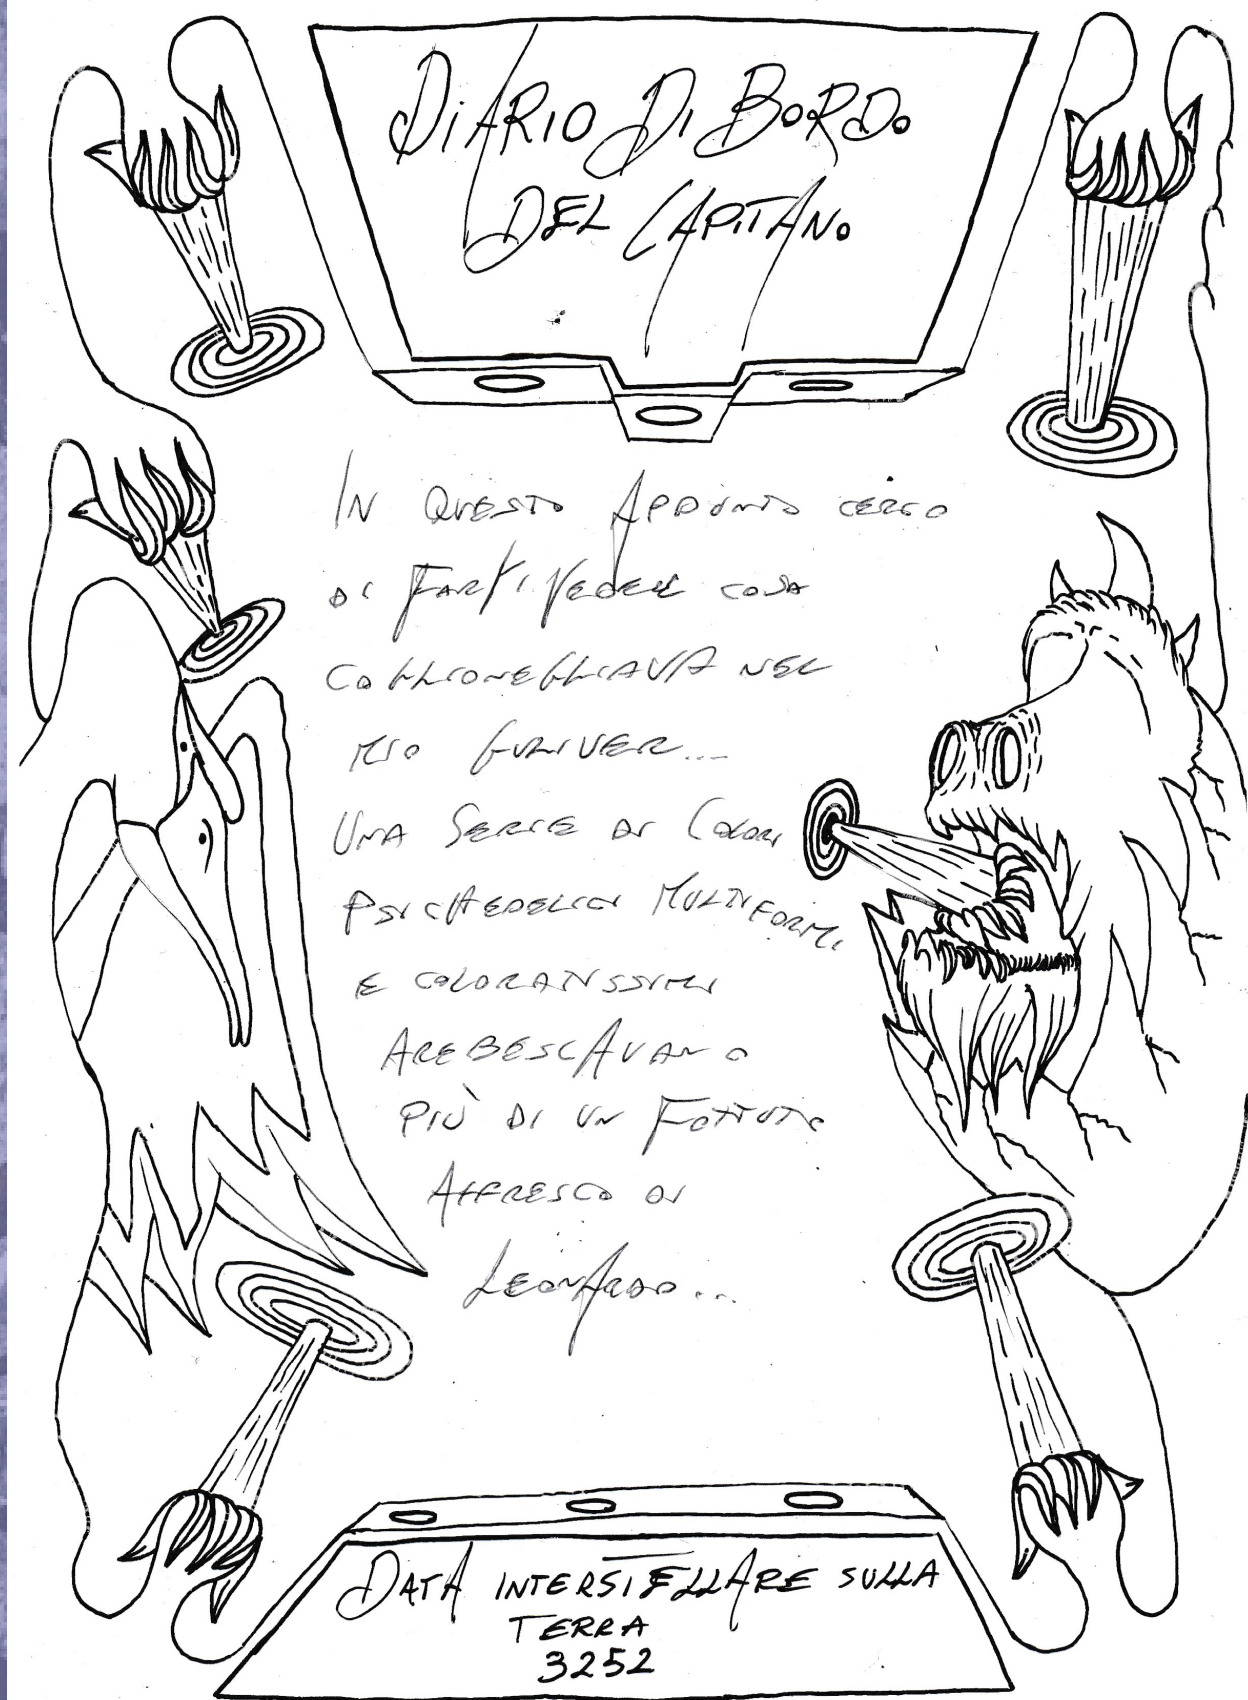 DIARIO DI BORDO
DEL CAPITANO
IN QUESTO APPUNTO CERCO
DI FARTI VEDERE COSA
COGLIONEGGIAVA NEL
MIO GULLIVER...
UNA SERIE DI COLORI
PSICHEDELICI MULTIFORMI
E COLORATISSIMI
AREBESCAVANO
PIÙ DI UN FOTTUTO
AFFRESCO DI
LEONARDO...
DATA INTERSTELLARE SULLA
TERRA
3252